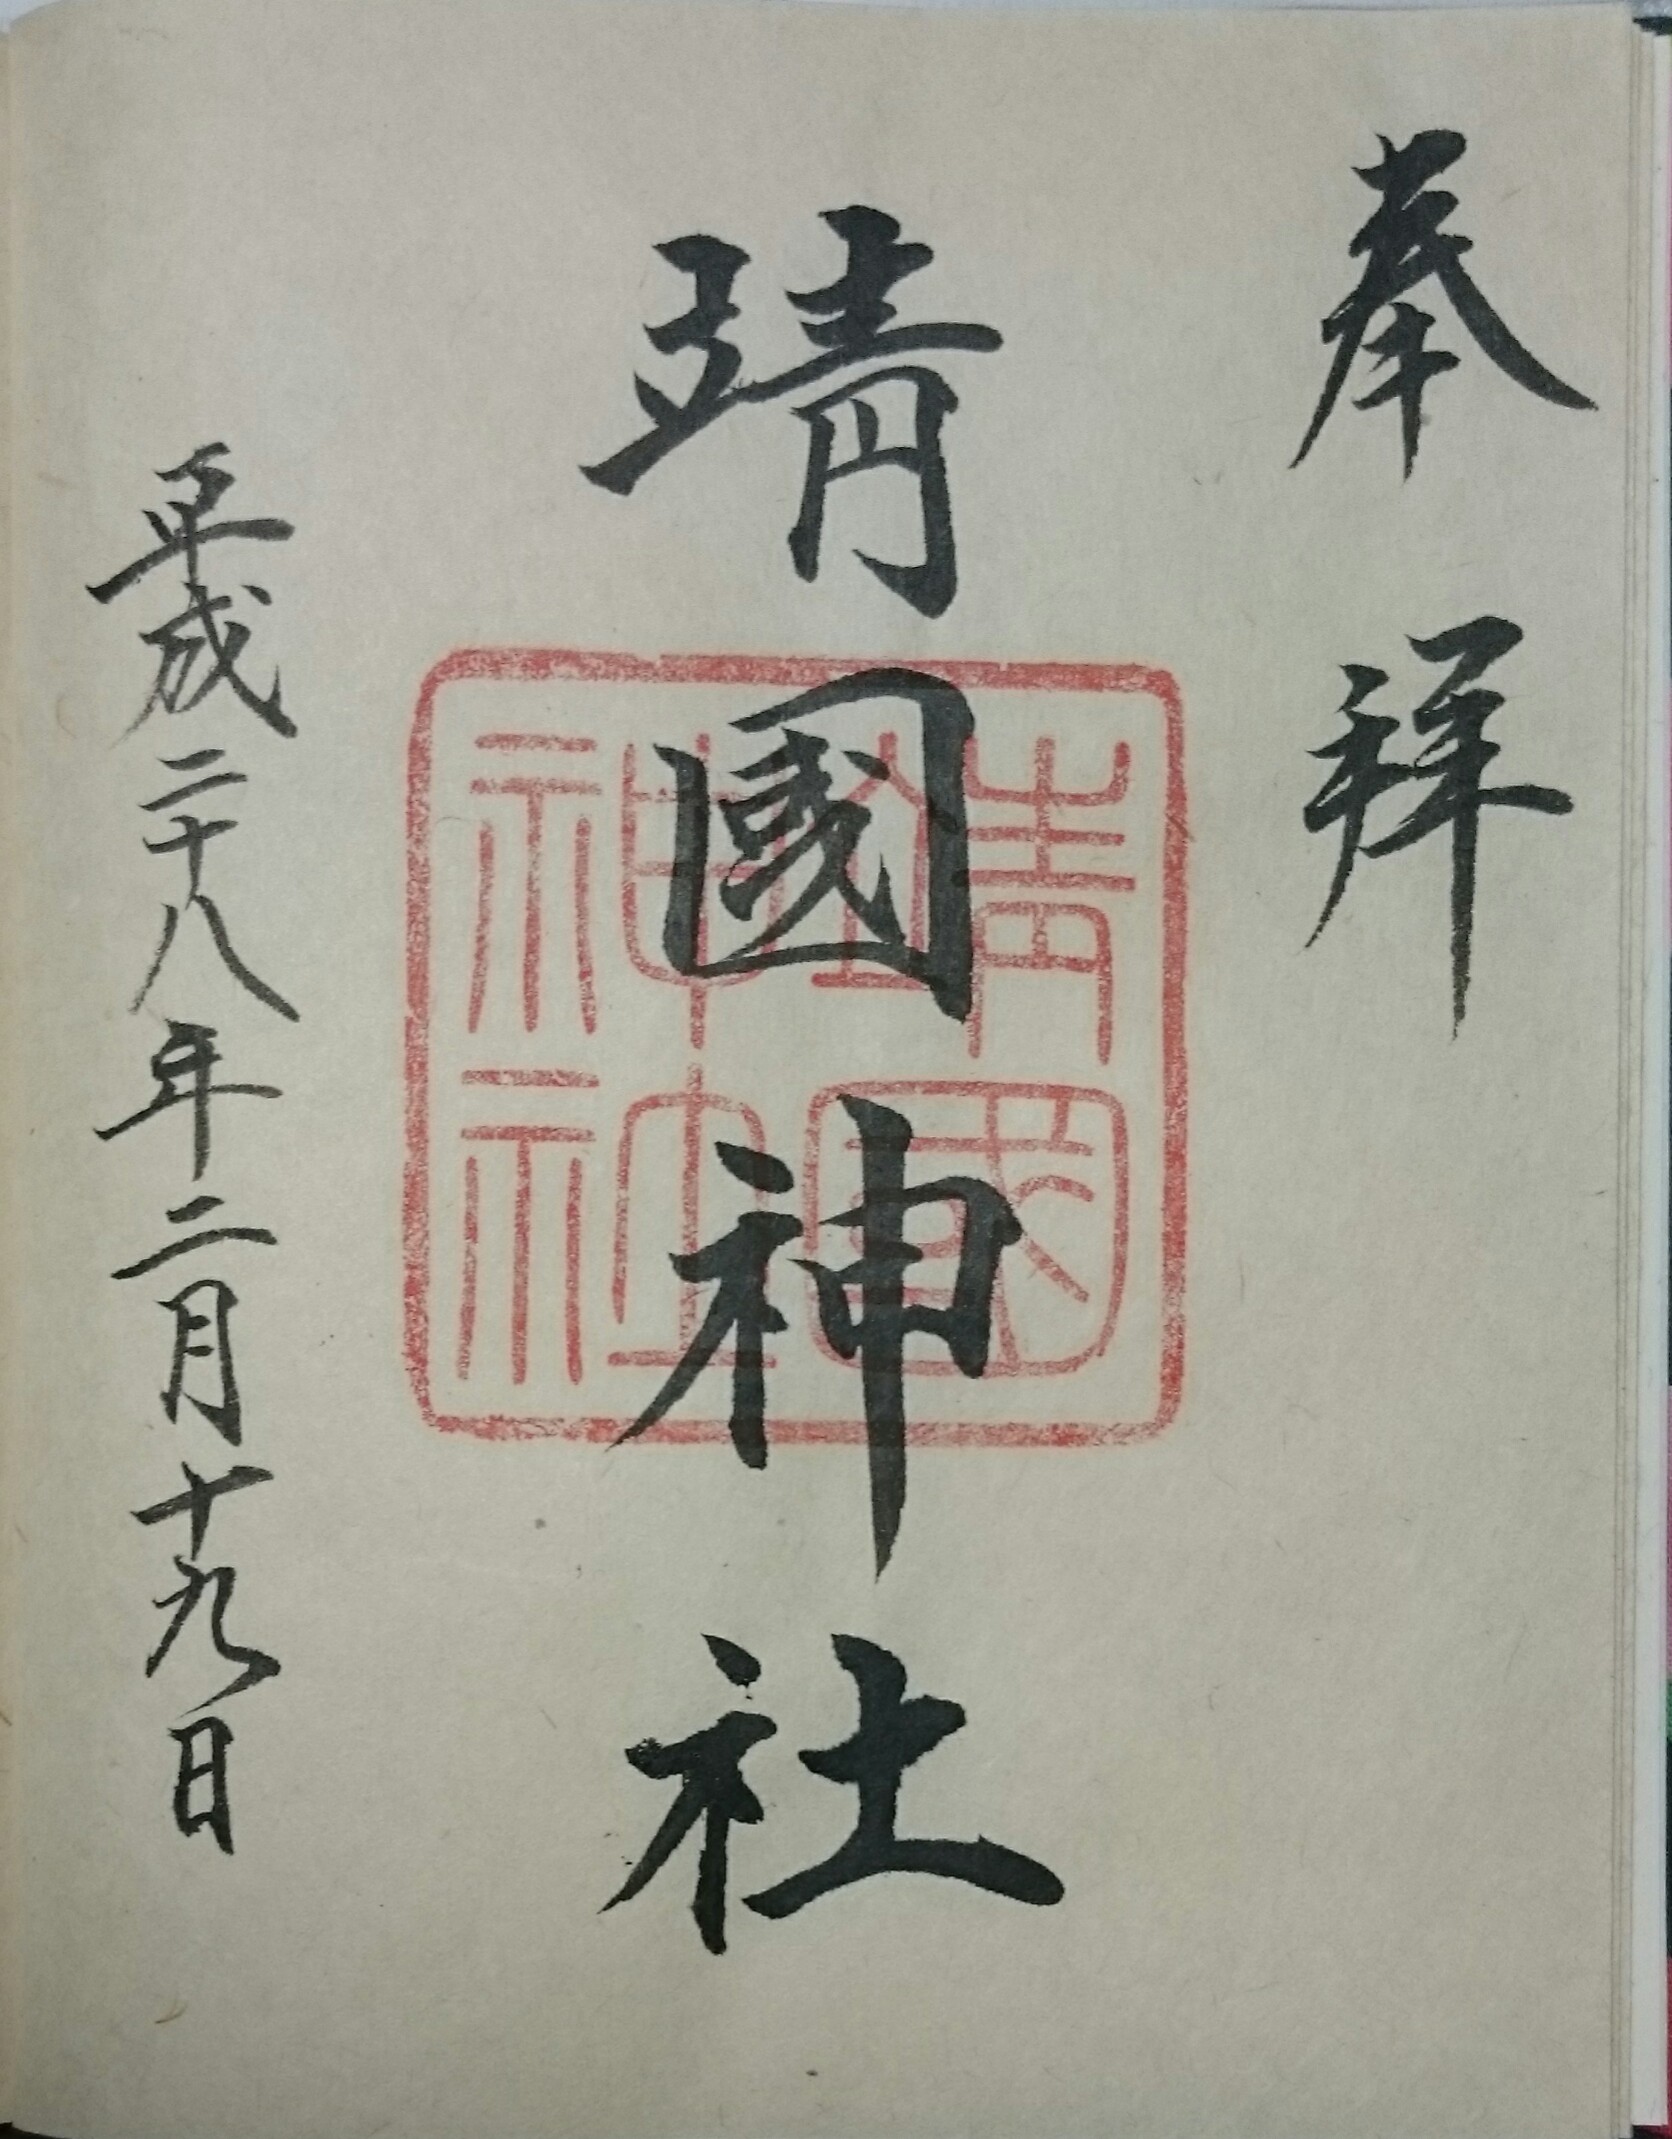 奉拝
靖國神社
靖國
神社
平成二十八年二月十九日